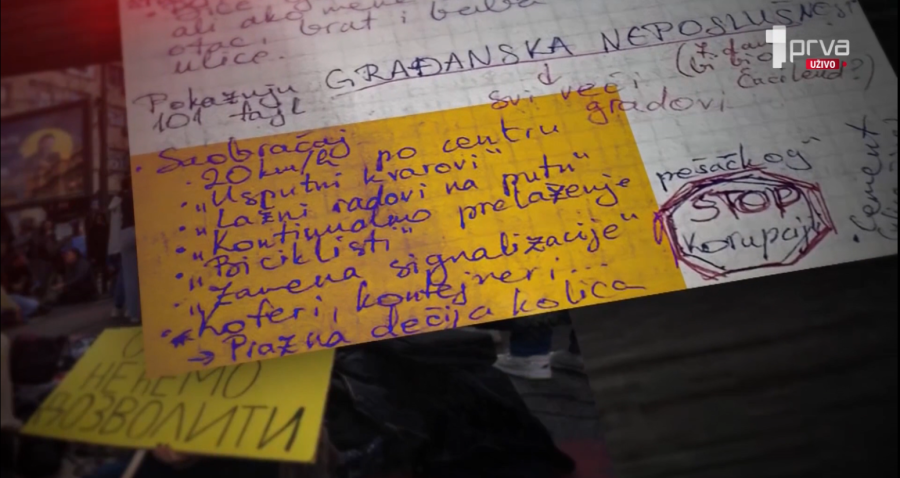 ali ako mene
otac, brat i baba
ulice.
GRAĐANSKA NEPOSLUŠNOST
Pokazuju
101 tajl
svi veći gradovi
(Z dan
bi bio
Čaciland?)
• Saobraćaj
• 20 km/h po centru
• "Usputni kvarovi"
• "Lažni radovi na putu"
• "Kontinualno prelaženje pešačkog"
• "Biciklisti"
• "Zamena signalizacije"
• Koferi, kontejneri...
→ Prazna dečija kolica
STOP
korupciji
• Cement
1prva
UŽIVO
НЕЋЕМО
ДОЗВОЛИТИ